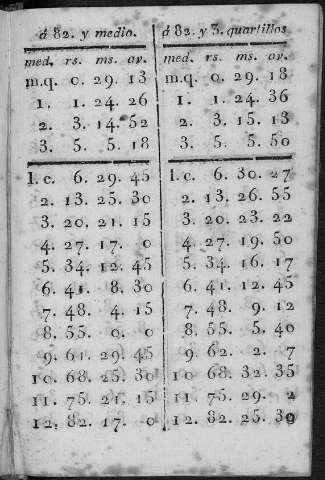 á 82. y medio.
med. rs. ms. av.
m.q. 0. 29. 13
1. 1. 24. 26
2. 3. 14. 52
3. 5. 5. 18
1. c. 6. 29. 45
2. 13. 25. 30
3. 20. 21. 15
4. 27. 17. 0
5. 34. 12. 45
6. 41. 8. 30
7. 48. 4. 15
8. 55. 0. 0
9. 61. 29. 45
10. 68. 25. 30
11. 75. 21. 15
12. 82. 17. 0
á 82. y 3. quartillos
med. rs. ms. av.
m.q. 0. 29. 18
1. 1. 24. 36
2. 3. 15. 13
3. 5. 5. 50
1. c. 6. 30. 27
2. 13. 26. 55
3. 20. 23. 22
4. 27. 19. 50
5. 34. 16. 17
6. 41. 12. 45
7. 48. 9. 12
8. 55. 5. 40
9. 62. 2. 7
10 68. 32. 35
11. 75. 29. 2
12. 82. 25. 30